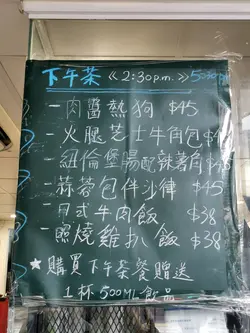 下午茶 《2:30p.m.》 5:30pm
－肉醬熱狗 $45
－火腿芝士牛角包 $4
－紐倫堡腸配辣薯角
－蒜蓉包伴沙律 $45
－日式牛肉飯 $38
－照燒雞扒飯 $38
★購買下午茶餐贈送
1杯500ML飲品